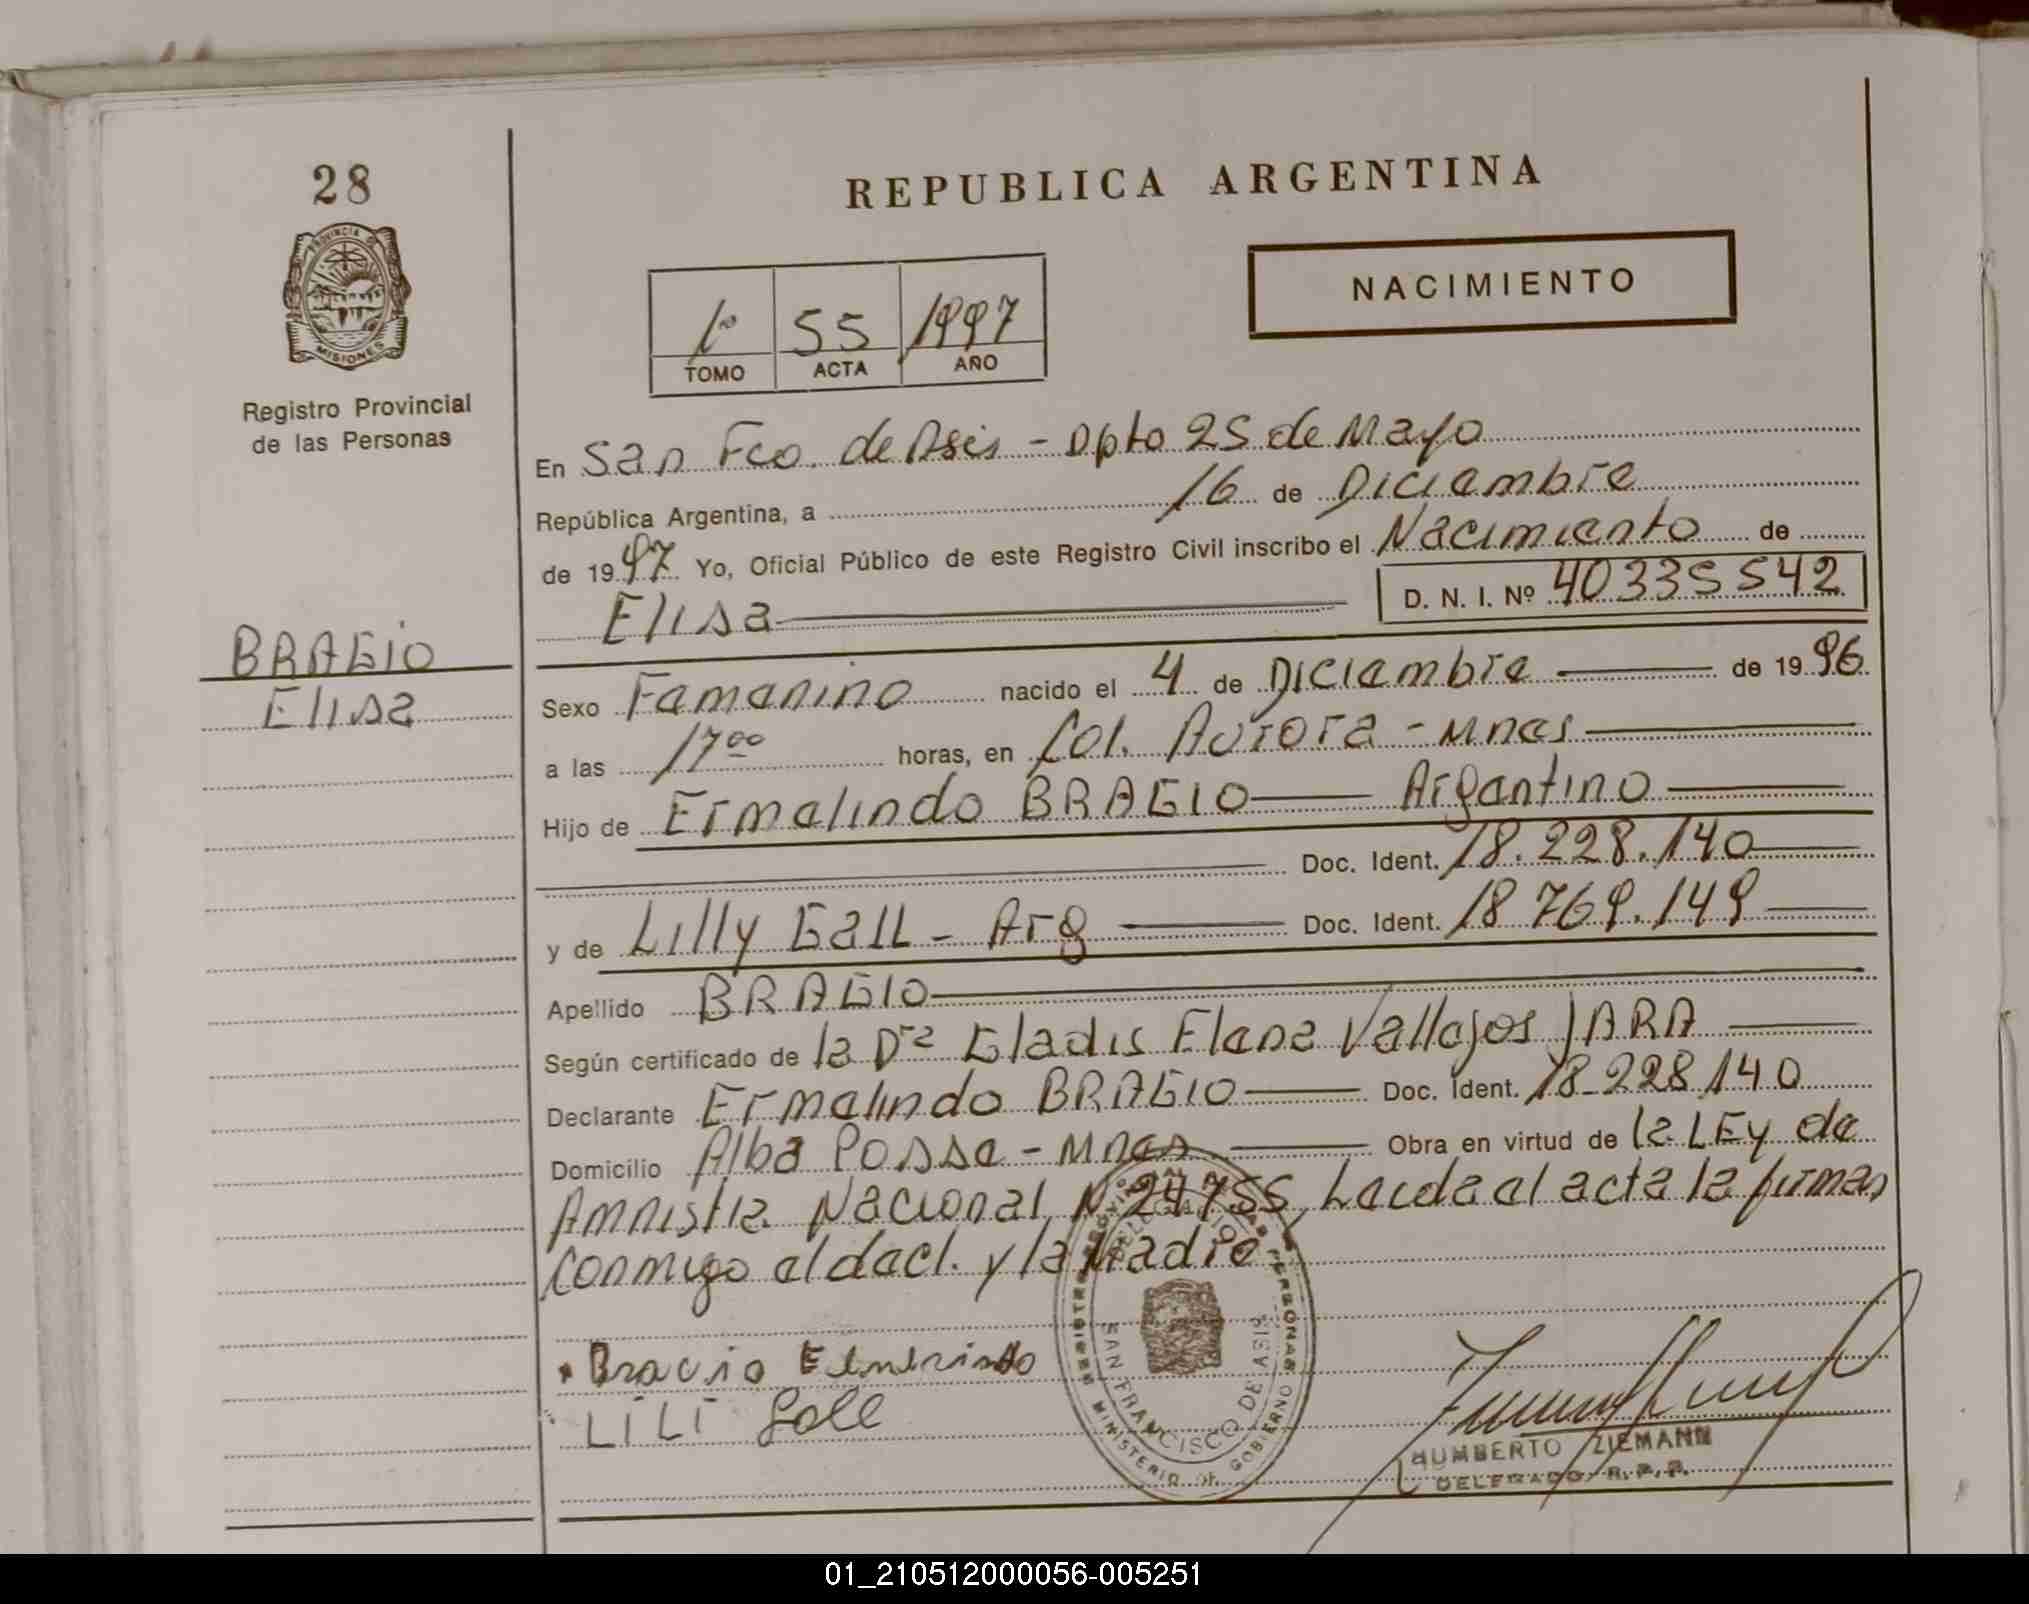 28
REPUBLICA ARGENTINA
PROVINCIA DE
MISIONES
NACIMIENTO
1º 55 1997
TOMO ACTA AÑO
Registro Provincial
de las Personas
En San Fco. de Asis - Dpto 25 de Mayo
República Argentina, a 16 de Diciembre
de 1997 Yo, Oficial Público de este Registro Civil inscribo el Nacimiento de
D. N. I. Nº 40335542
Elisa
BRAGIO
Elisa
Sexo Femenino nacido el 4 de Diciembre de 1996
a las 17⁰⁰ horas, en Col. Aurora - Mnes
Hijo de Ermelindo BRAGIO Argentino
Doc. Ident. 18.228.140
y de Lilly Gall - Arg Doc. Ident. 18 769.149
Apellido BRAGIO
Según certificado de la Dra Gladis Elena Vallejos JARA
Declarante Ermelindo BRAGIO Doc. Ident. 18-228.140
Domicilio Alba Posse - Mnes Obra en virtud de la LEy de
Amnistia Nacional N 24755, Leida el acta la firman
conmigo el decl. y la Madre
LiLi Gole
REGISTRO PROVINCIAL DE LAS PERSONAS
DELEGACION
SAN FRANCISCO DE ASIS
MINISTERIO DE GOBIERNO
HUMBERTO ZIEMANN
DELEGADO R.P.P.
01_210512000056-005251